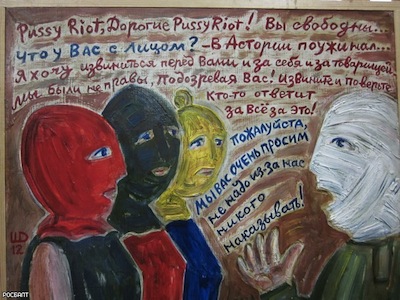 Pussy Riot, Дорогие Pussy Riot! Вы свободны...
Что у Вас с лицом? – В Астории поужинал...
Я хочу извиниться перед Вами и за себя и за товарищей.
Мы были не правы, подозревая Вас! Извините и поверьте
Кто-то ответит
за Всё за Это!
Пожалуйста,
Мы Вас очень просим
не надо из-за нас
никого
наказывать!
ШD
12
РОСБАЛТ